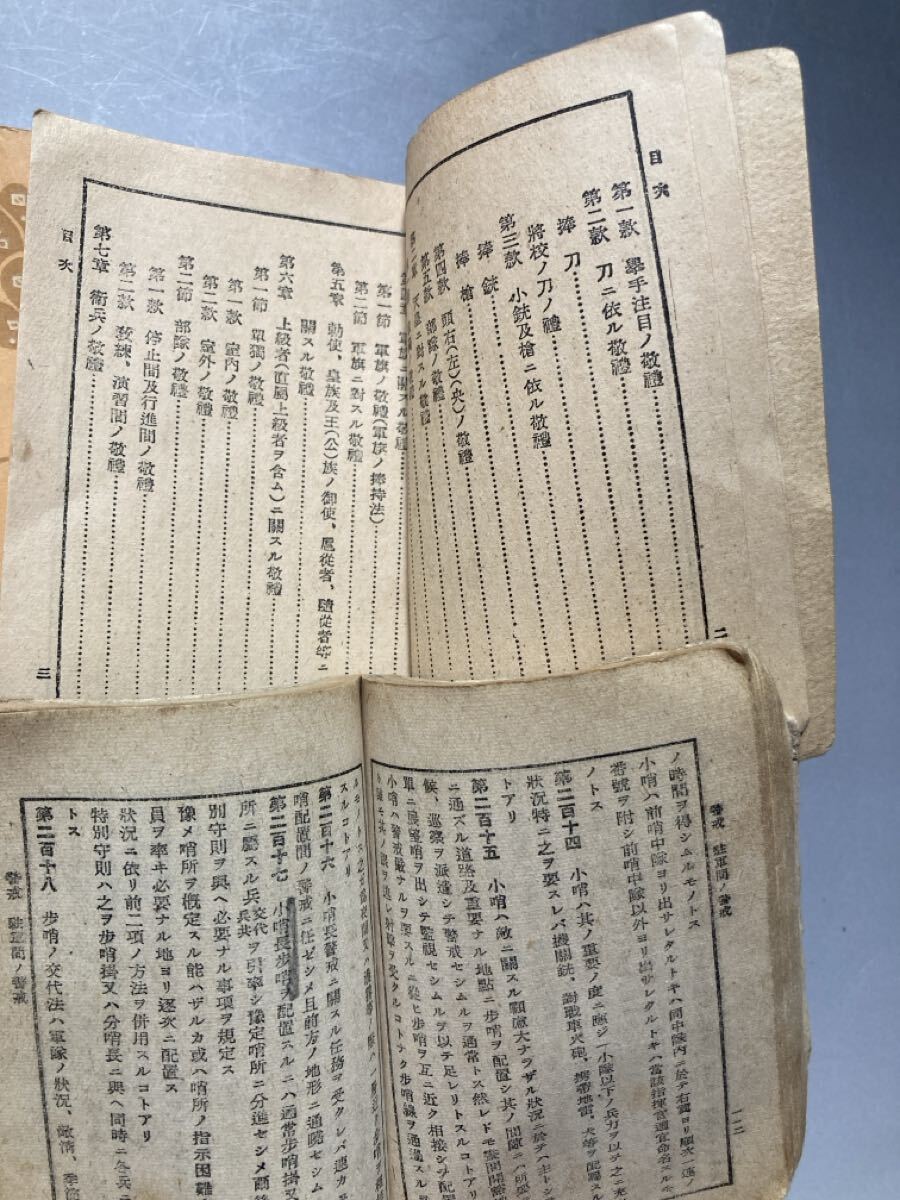 目次
第一款 擧手注目ノ敬禮
第二款 刀ニ依ル敬禮
捧刀
將校ノ刀ノ禮
第三款 小銃及槍ニ依ル敬禮
捧銃
捧槍
第四款 頭右(左)(央)ノ敬禮
第五款 部隊ノ敬禮
ニ對スル敬禮
二
軍旗ニ關スル敬禮
第一節 軍旗ノ敬禮(軍旗ノ捧持法)
第二節 軍旗ニ對スル敬禮
第五章 勅使、皇族及王(公)族ノ御使、扈從者、隨從者等ニ
關スル敬禮
第六章 上級者(直屬上級者ヲ含ム)ニ關スル敬禮
第一節 單獨ノ敬禮
第一款 室内ノ敬禮
第二款 室外ノ敬禮
第二節 部隊ノ敬禮
第一款 停止間及行進間ノ敬禮
第二款 敎練、演習間ノ敬禮
第七章 衞兵ノ敬禮
目次
三
警戒 駐軍間ノ警戒
ノ時間ヲ得シムルモノトス
小哨ハ前哨中隊ヨリ出サレタルトキハ同中隊内ニ於テ右翼ヨリ順次一連ノ
番號ヲ附シ前哨中隊以外ヨリ出サレタルトキハ當該指揮官適宜命名スルモ
ノトス
第二百十四 小哨ハ其ノ重要ノ度ニ應ジ一小隊以下ノ兵力ヲ以テ之ニ充
狀況特ニ之ヲ要スレバ機關銃、對戰車火砲、携帶地雷、犬等ヲ配屬スル
トアリ
第二百十五 小哨ハ敵ニ關スル顧慮大ナラザル狀況ニ於テハ主トシ
ニ通ズル道路及重要ナル地點ニ步哨ヲ配置シ其ノ間隙ニハ所要
候、巡察ヲ派遣シテ警戒セシムルヲ通常トス然レドモ
單ニ展望哨ヲ出シテ監視セシムルヲ以テ足レリトスルコトアリ
小哨ハ警戒嚴ナルヲ要スルニ從ヒ步哨ヲ互ニ近ク相接シテ配置
ルモノトス
スルコトアリ
第二百十六 小哨長警戒ニ關スル任務ヲ受クレバ速カ
哨配置間ノ警戒ニ任ゼシメ且前方ノ地形ニ通曉セシム
第二百十七 小哨長步哨ヲ配置スルニハ通常步哨掛又
所ニ屬スル兵交代兵共ヲ引率シ豫定哨所ニ分進セシメ
別守則ヲ與ヘ必要ナル事項ヲ規定ス
豫メ哨所ヲ概定スル能ハザルカ或ハ哨所ノ指示困難
員ヲ率ヰ必要ナル地ヨリ逐次ニ配置ス
狀況ニ依リ前二項ノ方法ヲ併用スルコトアリ
特別守則ハ之ヲ步哨掛又ハ分哨長ニ與ヘ同時ニ各兵ニ
トス
第二百十八 步哨ノ交代法ハ軍隊ノ狀況、敵情、季節
警戒 駐軍間ノ警戒